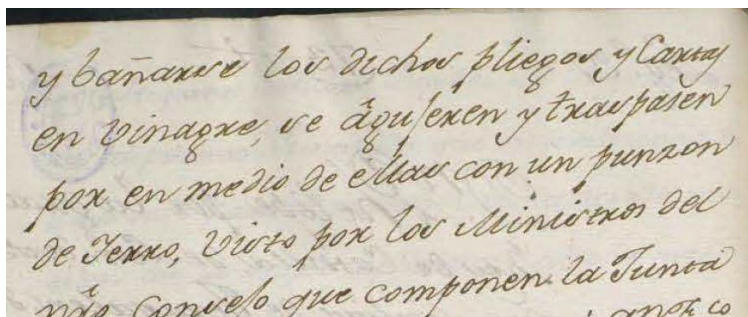 y bañarse los dichos pliegos y Cartas
en vinagre, se agujeren y traspasen
por en medio de ellas con un punzon
de Ferro, visto por los Ministros del
nro Consejo que componen la Junta